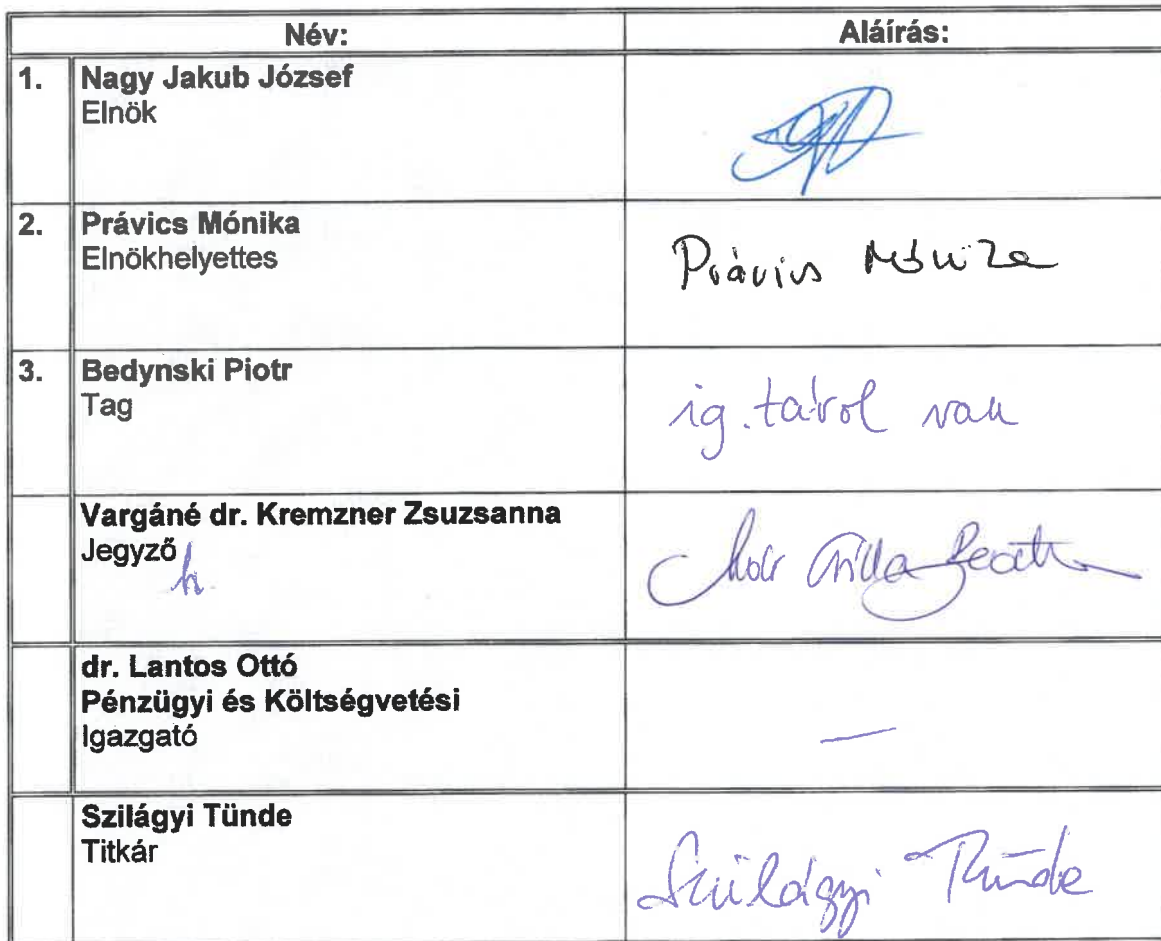 Név: Aláírás:
1. Nagy Jakub József
Elnök
2. Právics Mónika
Elnökhelyettes
Právics Mónika
3. Bedynski Piotr
Tag
ig. távol van
Vargáné dr. Kremzner Zsuzsanna
Jegyző
h.
dr. Lantos Ottó
Pénzügyi és Költségvetési
Igazgató
—
Szilágyi Tünde
Titkár
Szilágyi Tünde